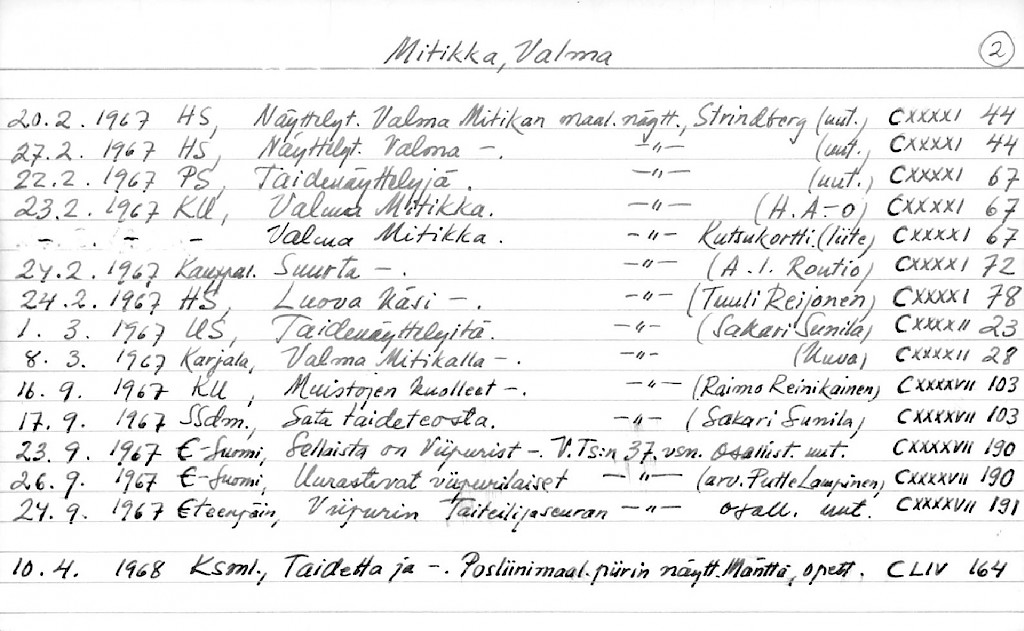 Mitikka, Valma 2
20.2. 1967 HS, Näyttelyt. Valma Mitikan maal. näytt., Strindberg (uut.) CXXXXI 44
27.2. 1967 HS, Näyttelyt. Valma -. -"- (uut.) CXXXXI 44
22.2. 1967 PS, Taidenäyttelyjä. -"- (uut.) CXXXXI 67
23.2. 1967 KU, Valma Mitikka. -"- (H.A-o) CXXXXI 67
- - - Valma Mitikka. -"- Kutsukortti. (liite) CXXXXI 67
24.2. 1967 Kauppal. Suurta -. -"- (A.I. Routio) CXXXXI 72
24.2. 1967 HS, Luova käsi -. -"- (Tuuli Reijonen) CXXXXI 78
1. 3. 1967 US, Taidenäyttelyitä. -"- (Sakari Sunila) CXXXXII 23
8. 3. 1967 Karjala, Valma Mitikalla -. -"- (Kuva) CXXXXII 28
16. 9. 1967 KU, Muistojen kuolleet -. -"- (Raimo Reinikainen) CXXXXVII 103
17. 9. 1967 SSdm., Sata taideteosta. -"- (Sakari Sunila) CXXXXVII 103
23. 9. 1967 E-Suomi, Sellaista on Viipurist -. V.Ts:n 37. vsn. osallist. uut. CXXXXVII 190
26. 9. 1967 E-Suomi, Uurastivat viipurilaiset -"- (arv. Putte Lampinen) CXXXXVII 190
24. 9. 1967 Eteenpäin, Viipurin Taiteilijaseuran -"- osall. uut. CXXXXVII 191
10. 4. 1968 Ksml., Taidetta ja -. Posliinimaal. piirin näytt. Mänttä, opett. CLIV 164